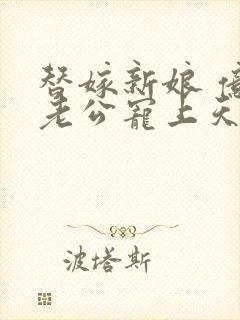 替嫁新娘
老公宠上天
波塔斯